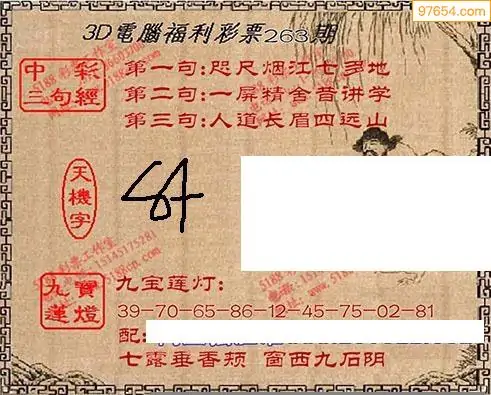 97654.com
3D電腦福利彩票263期
中彩
三句經
第一句:咫尺烟江七多地
第二句:一屏精舍昔讲学
第三句:人道长眉四远山
天機字
九寶
蓮燈
九宝莲灯:
39-70-65-86-12-45-75-02-81
配:
七露垂香颊 窗西九石阴